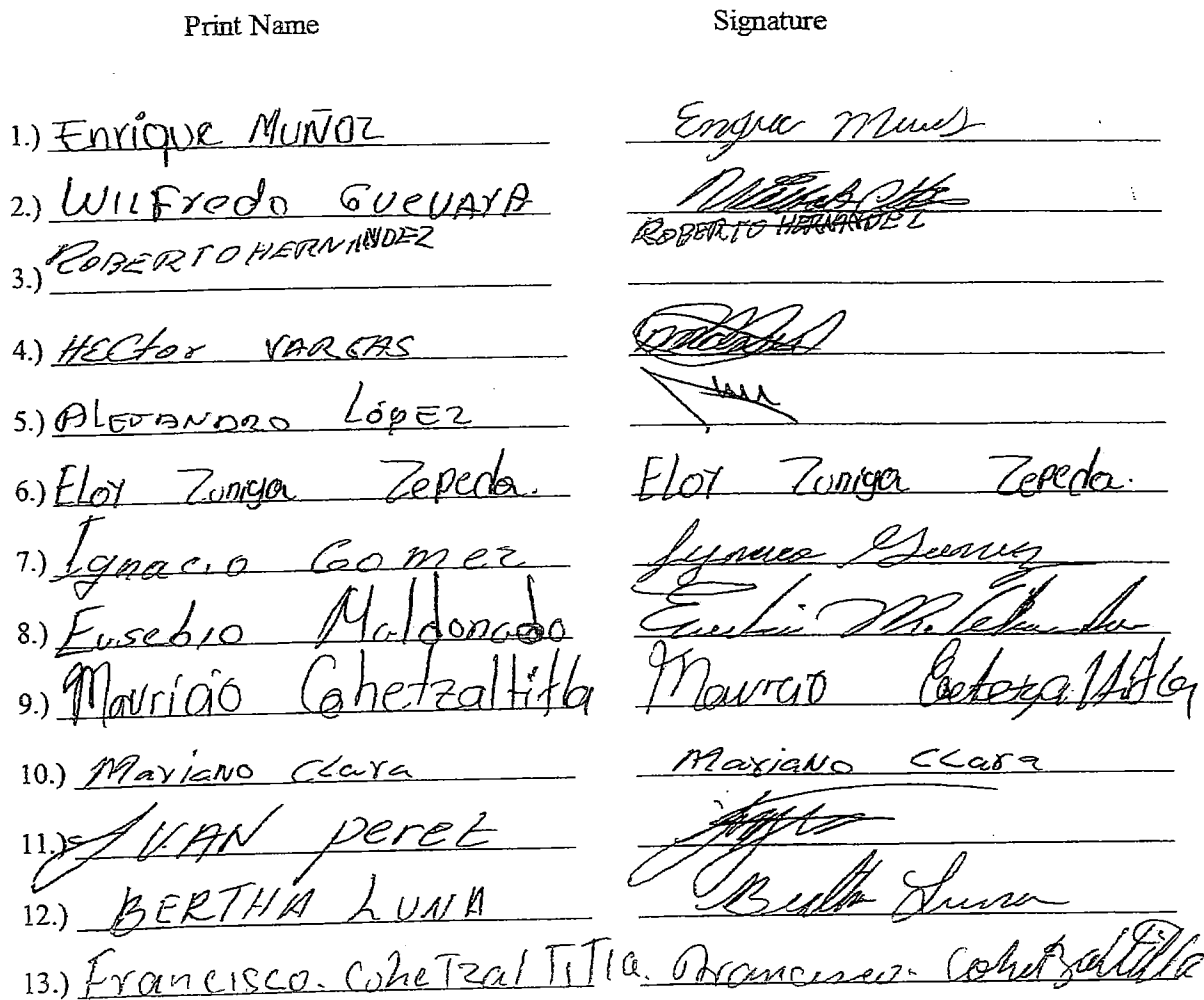 Print Name Signature
1.) Enrique MUÑOZ
2.) WILFredo GUEVARA
3.) ROBERTO HERNANDEZ ROBERTO HERNANDEZ
4.) HECtor VARGAS
5.) ALEJANDRO LópEZ
6.) Eloy Zuniga Zepeda. Eloy Zuniga Zepeda.
7.) Ignacio Gomez
8.) Eusebio Maldonado
9.) Mauricio Cohetzaltitla
10.) Mariano Clara Mariano Clara
11.) JUAN perez
12.) BERTHA LUNA Bertha Luna
13.) Francisco. CoheTzalTiTla. Francisco. Cohetzaltitla